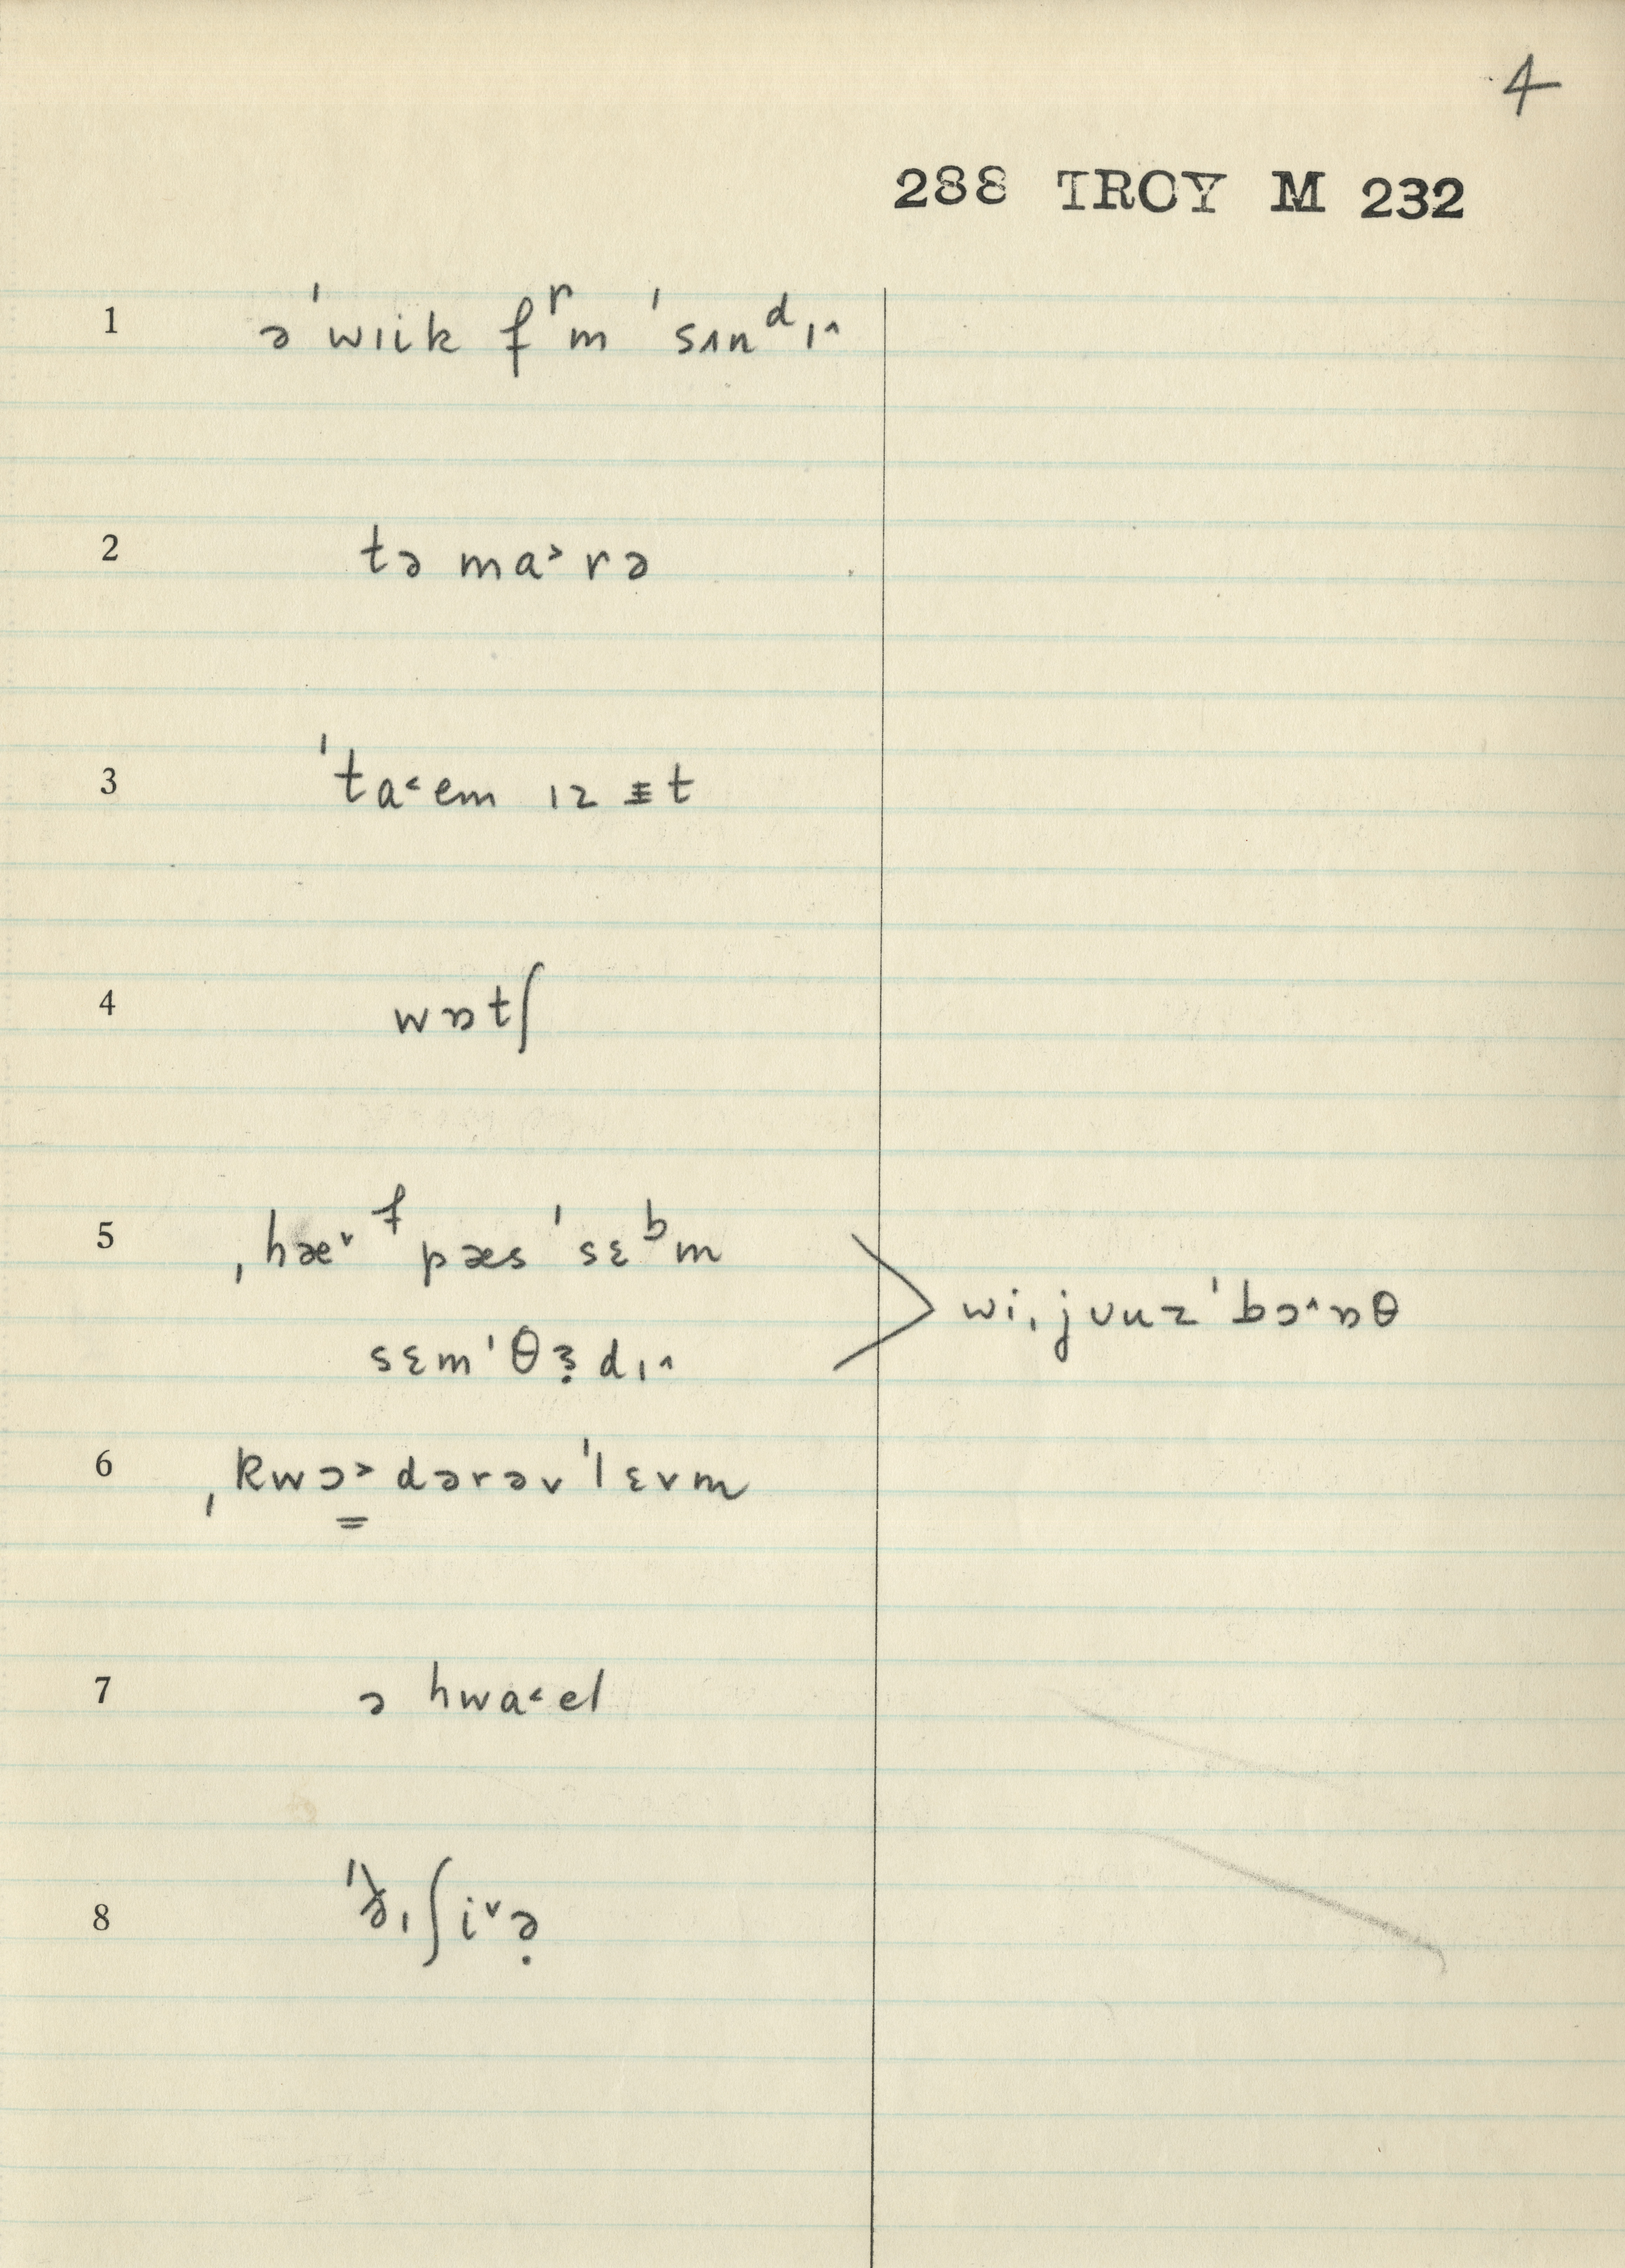 4
288 TROY M 232
1 ə ˈwɪik fʳm ˈsʌnᵈɪ^
2 tə ma˃ rə
3 ˈta˂em ɪz ᵻt
4 wɒtʃ
5 ˌhæ˅ᶠ pæs ˈsɛᵇm
sɛmˈθɝdɪ^ > wiˌjʊuzˈbɔ^ɒθ
6 ˌkwɔ̳˃dərəvˈlɛvm
7 ə hwa˂el